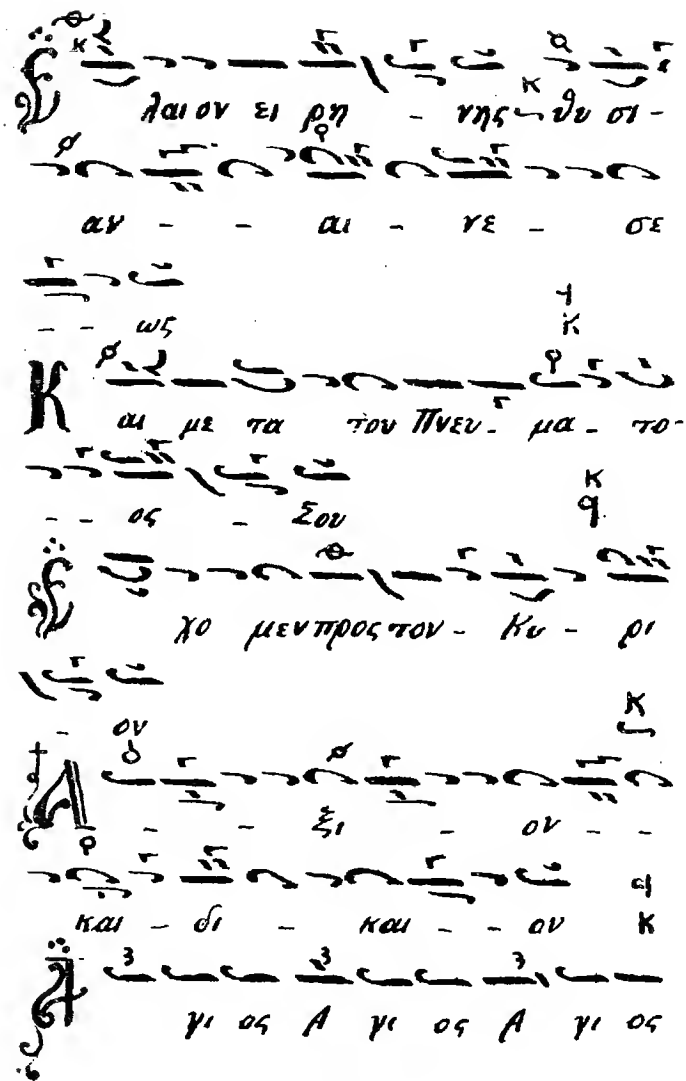 Ελαιον ει ρη - νης θυ σι-
αν - - αι - νε - σε
- - ως
Και με τα του Πνευ- μα- το-
- - ος - Σου
Εχο μεν προς τον- Κυ - ρι
- ον
Α - - ξι - ον - -
και - δι - και - - ον
Αγι ος Α γι ος Α γι ος